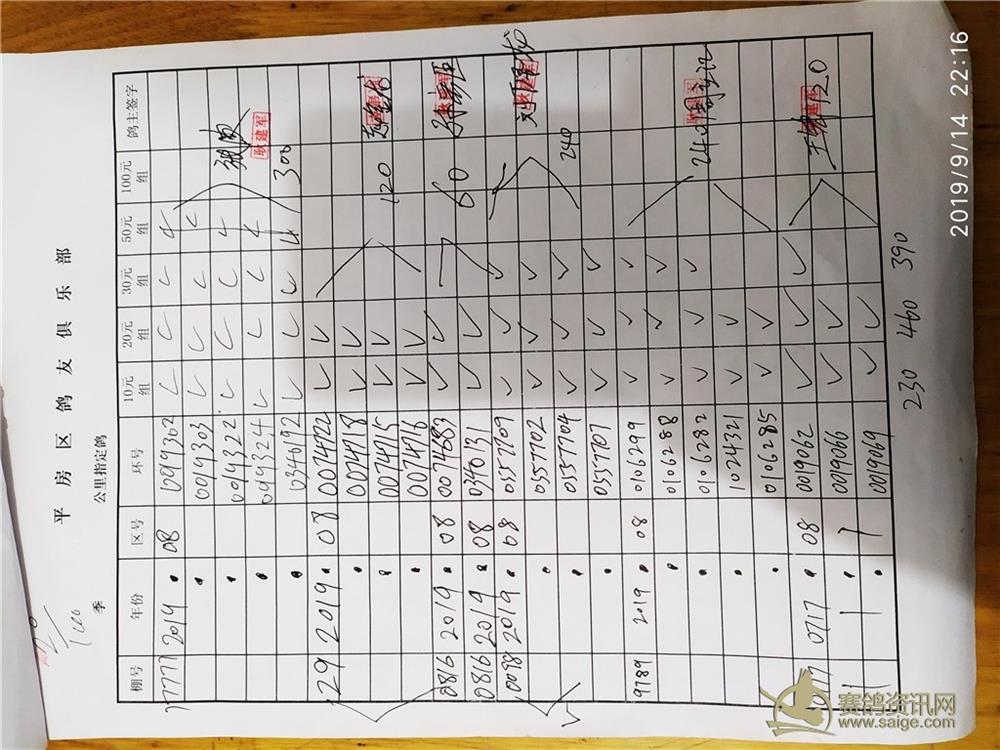 平房区鸽友俱乐部
季 公里指定鸽
棚号 年份 区号 环号 10元组 20元组 30元组 50元组 100元组 鸽主签字
77777 2019 08 0019302 ✓ ✓ ✓ ✓
0019303 ✓ ✓ ✓ ✓
0019322 ✓ ✓ ✓ ✓
0019324 ✓ ✓ ✓ ✓
0346192 ✓ ✓ ✓ ✓ 300 耿建军
29 2019 08 0074422 ✓ ✓
0074918 ✓ ✓
0074915 ✓ ✓ 120
0074916 ✓ ✓
0816 2019 08 0074683 ✓ ✓ 60
0816 2019 08 0340131 ✓ ✓
0098 2019 08 0557709 ✓ ✓ ✓
0557702 ✓ ✓ ✓
0557704 ✓ ✓ ✓ 240
0557701 ✓ ✓ ✓
9789 2019 08 0106299 ✓ ✓ ✓
0106288 ✓ ✓ ✓
0106282 ✓ ✓ ✓ 240
1024321 ✓ ✓
0106285 ✓ ✓
0717 08 0019062 ✓ ✓ ✓
0019066 ✓ ✓
0019069 ✓ ✓
230 460 390
2019/9/14 22:16
赛鸽资讯网
www.saige.com